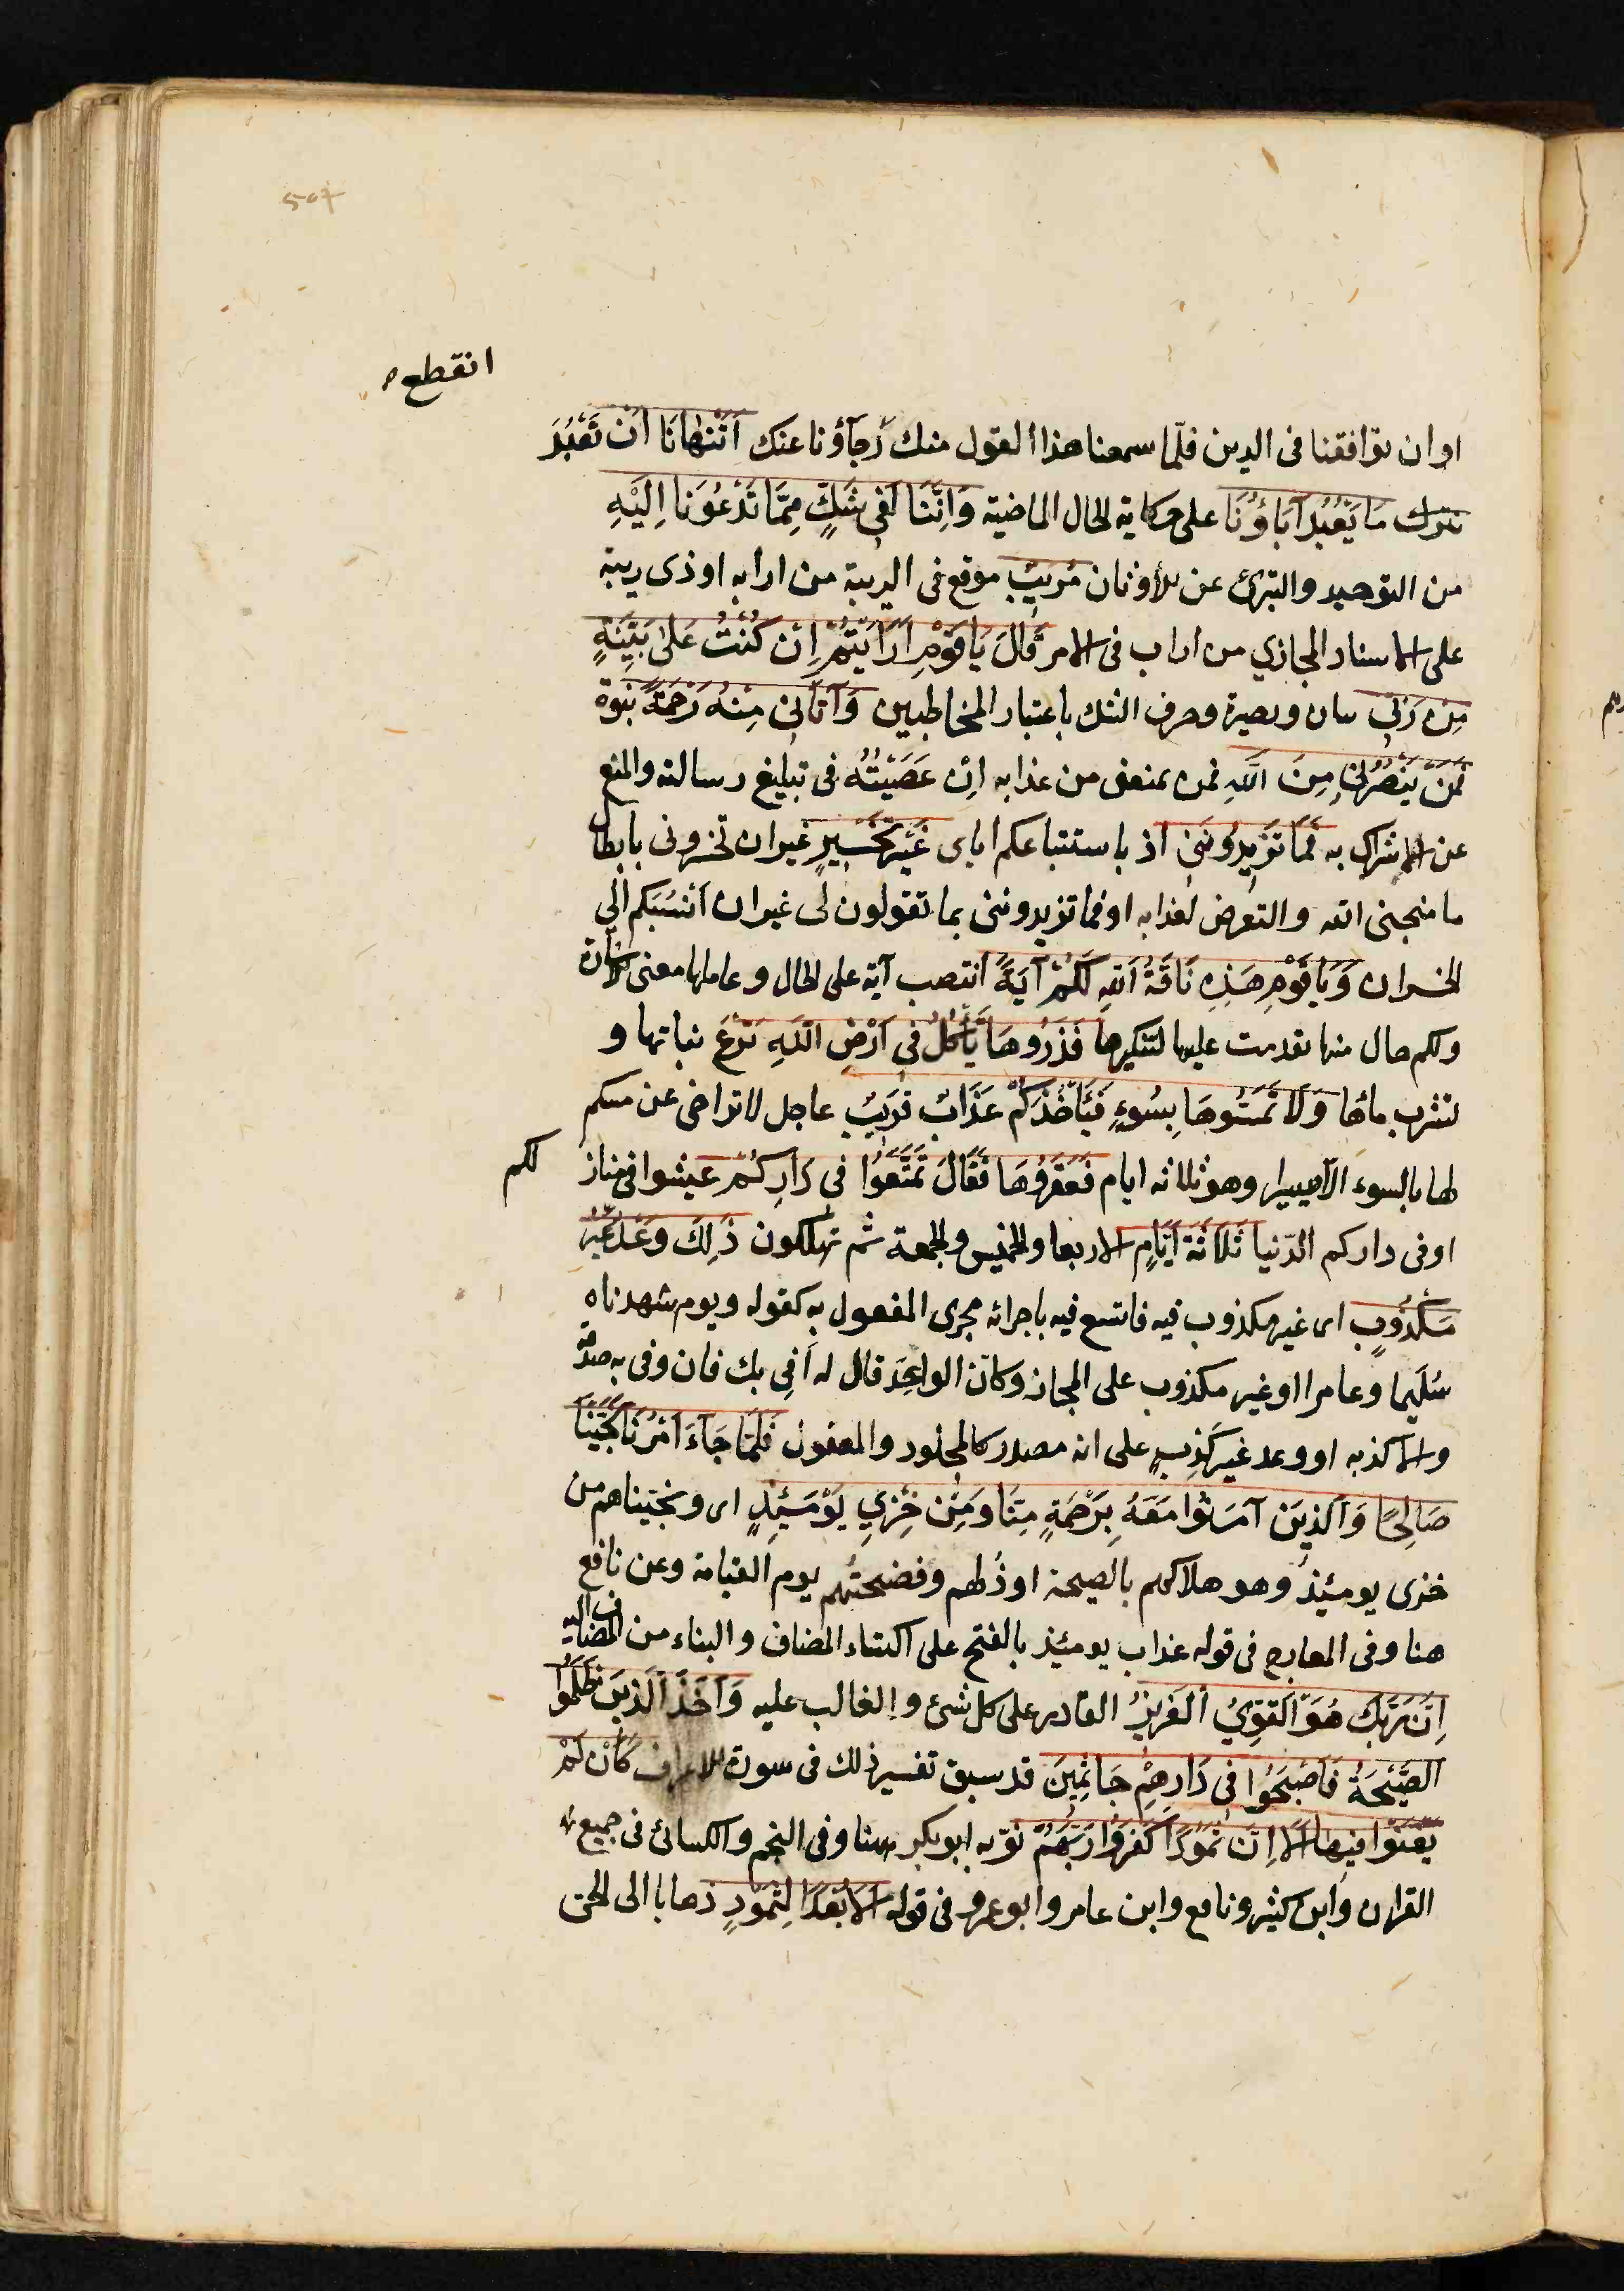 507
انقطع
او ان توافقنا فى الدين فلمّا سمعنا هذا القول منك رجآؤنا عنك اَتَنْهَانَا اَنْ نَعْبُدَ
نترك مَا يَعْبُدُ آبَاؤُنَا على حكاية الحال الماضية وَاِنَّنَا لَفى شَكٍّ مِمَّا تَدْعُونَا اِلَيْهِ
من التوحيد والتبرئ عن الأوثان مُريبٍ موقع فى الريبة من ارابه او ذى ريبة
على الاسناد المجازي من اراب فى الامر قَالَ يَا قَوْمِ اَرَاَيْتُمْ اِنْ كُنْتُ عَلىٰ بَيِّنَةٍ
مِنْ رَبّى بيان وبصيرة وحرف الشك باعتبار المخاطبين وَآتَانى مِنْهُ رَحْمَةً نبوة
فَمَنْ يَنْصُرُنى مِنَ اللّهِ فمن يمنعنى من عذابه اِنْ عَصَيْتُهُ فى تبليغ رسالته والمنع
عن الاشراك به فَمَا تَزيدُونَنى اذ باستتباعكم اياى غَيْرَ تَخْسيرٍ غير ان تخسرونى بابطال
ما منحنى الله والتعرض لعذابه او فما تزيدوننى بما تقولون لى غير ان اَنسُبَكم الى
الخسران وَيَا قَوْمِ هَذِهِ نَاقَةُ اللّهِ لَكُمْ آيَةً انتصب آية على الحال وعاملها معنى الاشارة
ولكم حال منها تقدمت عليها لتنكيرها فَذَرُوهَا تَأْكُلْ فى اَرْضِ اللّهِ تَرْعَ نباتها و
تشرب مائها وَلَا تَمَسُّوهَا بِسُوءٍ فَيَأْخُذَكُمْ عَذَابٌ قَريبٌ عاجل لا تراخى عن مسكم
لها بالسوء الّا يسيرا وهو ثلاثه ايام فَعَقَرُوهَا فَقَالَ تَمَتَّعُوا فى دَارِكُمْ عيشوا فى مناز لكم
او فى داركم الدّنيا ثَلَاثَةَ اَيَّامٍ الاربعا والخميس والجمعة ثم تهلكون ذَلِكَ وَعْدٌ غَيْرُ
مَكْذُوبٍ اى غير مكذوب فيه فاتسع فيه باجرائه مجرى المفعول به كقوله ويوم شهدناه
سُلَيما وعامرا او غير مكذوب على المجاز وكانّ الواعِدَ قال له اَفى بك فان وفى به صدقه
والا كذبه او وعد غير كَذِبٍ على انه مصدر كالمجلود والمعقول فَلَمَّا جَاءَ اَمْرُنَا نَجَّيْنَا
صَالِحًا وَالَّذينَ آمَنُوا مَعَهُ بِرَحْمَةٍ مِنَّا وَمِنْ خِزْىِ يَوْمَئِذٍ اى ونجّيناهم من
خزى يومئذ وهو هلاكهم بالصيحة او ذُلهم وفضيحتهم يوم القيامة وعن نافع
هنا وفى المعارج فى قوله عذاب يومئذ بالفتح على اكتساء المضاف والبناء من المضاف اليه
اِنَّ رَبَّكَ هُوَ الْقَوِىُّ الْعَزيزُ القادر على كل شئ والغالب عليه وَاَخَذَ الَّذينَ ظَلَمُوا
الصَّيْحَةُ فَاَصْبَحُوا فى دَارِهِمْ جَاثِمينَ قد سبق تفسير ذلك فى سورة الاعراف كَاَنْ لَمْ
يَغْنَوْا فيهَا اَلَا اِنَّ ثَمُودًا كَفَرُوا رَبَّهُمْ نوّنه ابوبكر هنا وفى النجم والكسائى فى جميع
القران وابن كثير ونافع وابن عامر وابوعمرو فى قوله اَلَا بُعْدًا لِثَمُودٍ ذهابا الى الحى